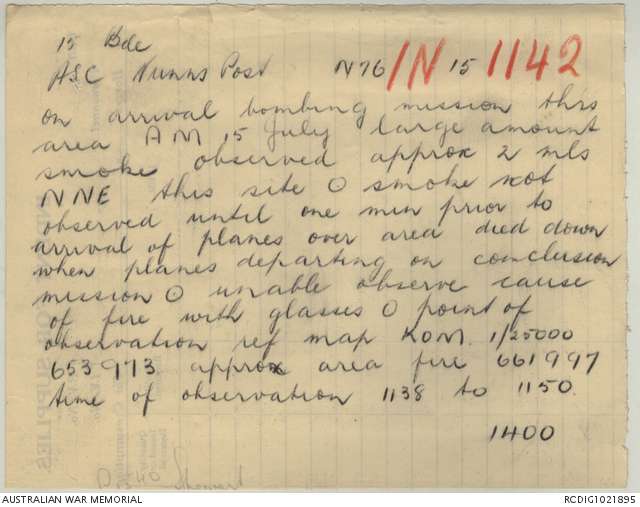 15 Bde
ASC Nunns Post N76 IN 15 1142
on arrival bombing mission this
area AM 15 July large amount
smoke observed approx 2 mls
NNE this site O smoke not
observed until one min prior to
arrival of planes over area died down
when planes departing on conclusion
mission O unable observe cause
of fire with glasses O point of
observation ref map KOM. 1/25000
653973 approx area fire 661997
time of observation 1138 to 1150.
1400
AUSTRALIAN WAR MEMORIAL
RCDIG1021895